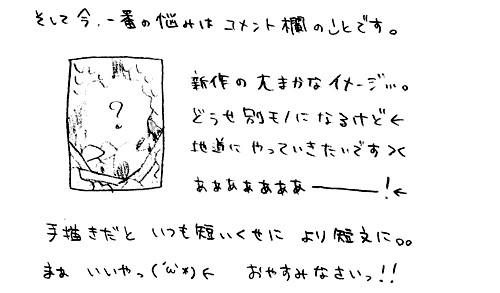 そして今、一番の悩みは コメント欄のことです。
?
新作の大まかなイメージ…。
どうせ別モノになるけど←
地道に やっていきたいです><
ああああああああ―――!←
手描きだと いつも短いくせに より短文に。。
まぁ いいやっ(´ω`*)← おやすみなさいっ!!